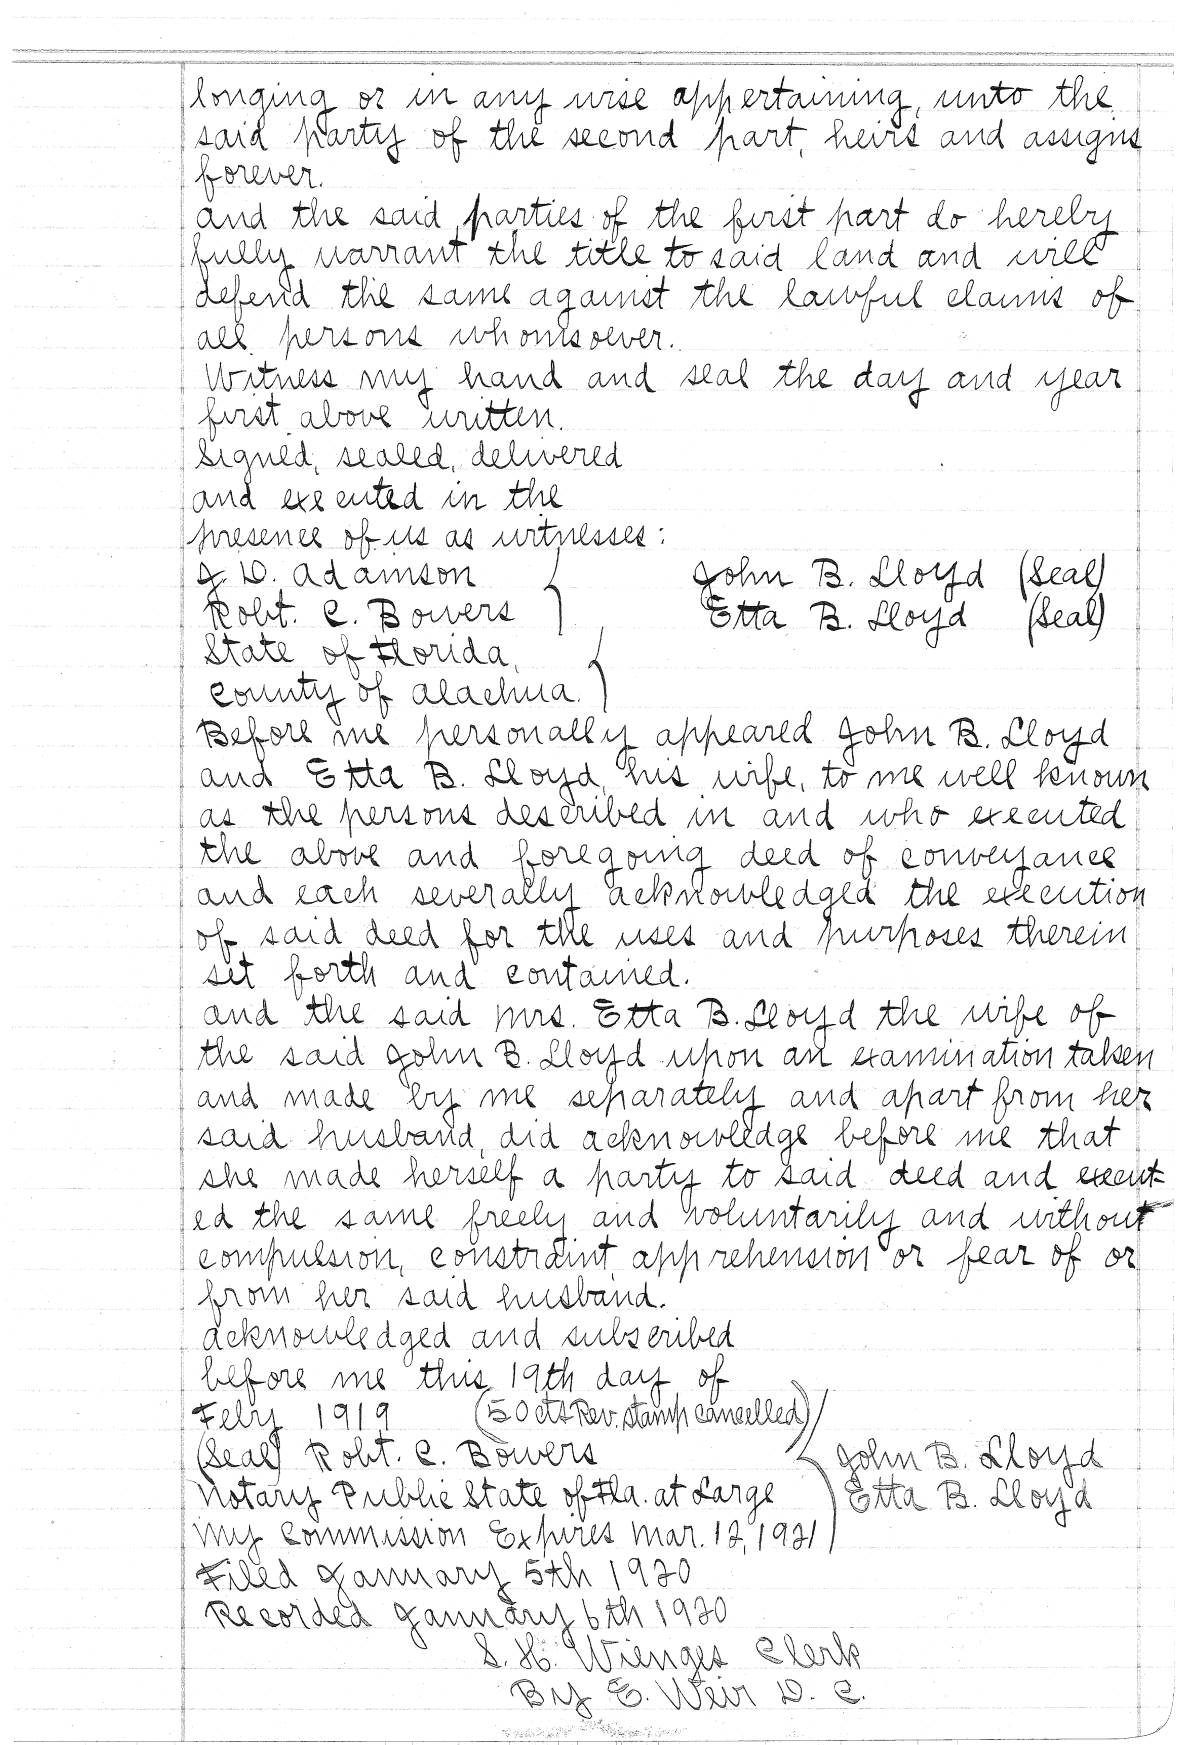 longing or in any wise appertaining, unto the
said party of the second part, heirs and assigns
forever.
and the said parties of the first part do hereby
fully warrant the title to said land and will
defend the same against the lawful claims of
all persons whomsoever.
Witness my hand and seal the day and year
first above written.
Signed, sealed, delivered
and executed in the
presence of us as witnesses:
J. D. Adamson John B. Lloyd (Seal)
Robt. C. Bowers Etta B. Lloyd (Seal)
State of Florida,
County of Alachua.
Before me personally appeared John B. Lloyd
and Etta B. Lloyd, his wife, to me well known
as the persons described in and who executed
the above and foregoing deed of conveyance
and each severally acknowledged the execution
of said deed for the uses and purposes therein
set forth and contained.
and the said Mrs. Etta B. Lloyd the wife of
the said John B. Lloyd upon an examination taken
and made by me separately and apart from her
said husband, did acknowledge before me that
she made herself a party to said deed and execut-
ed the same freely and voluntarily and without
compulsion, constraint, apprehension or fear of or
from her said husband.
acknowledged and subscribed
before me this 19th day of
Feby 1919 (50 cts Rev. stamp cancelled)
(Seal) Robt. C. Bowers John B. Lloyd
Notary Public State of Fla. at Large Etta B. Lloyd
My Commission Expires Mar. 12, 1921
Filed January 5th 1920
Recorded January 6th 1920
S. H. Wienges Clerk
By E. Weir D. C.